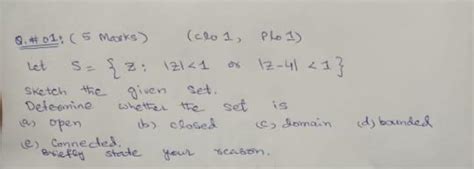 Q.# 01: (5 Marks) (clo 1, Plo 1)
Let S = { z: |z|<1 or |z-4| < 1 }
Sketch the given set.
Determine whether the set is
(a) open (b) closed (c) domain (d) bounded
(e) Connected.
Briefly state your reason.